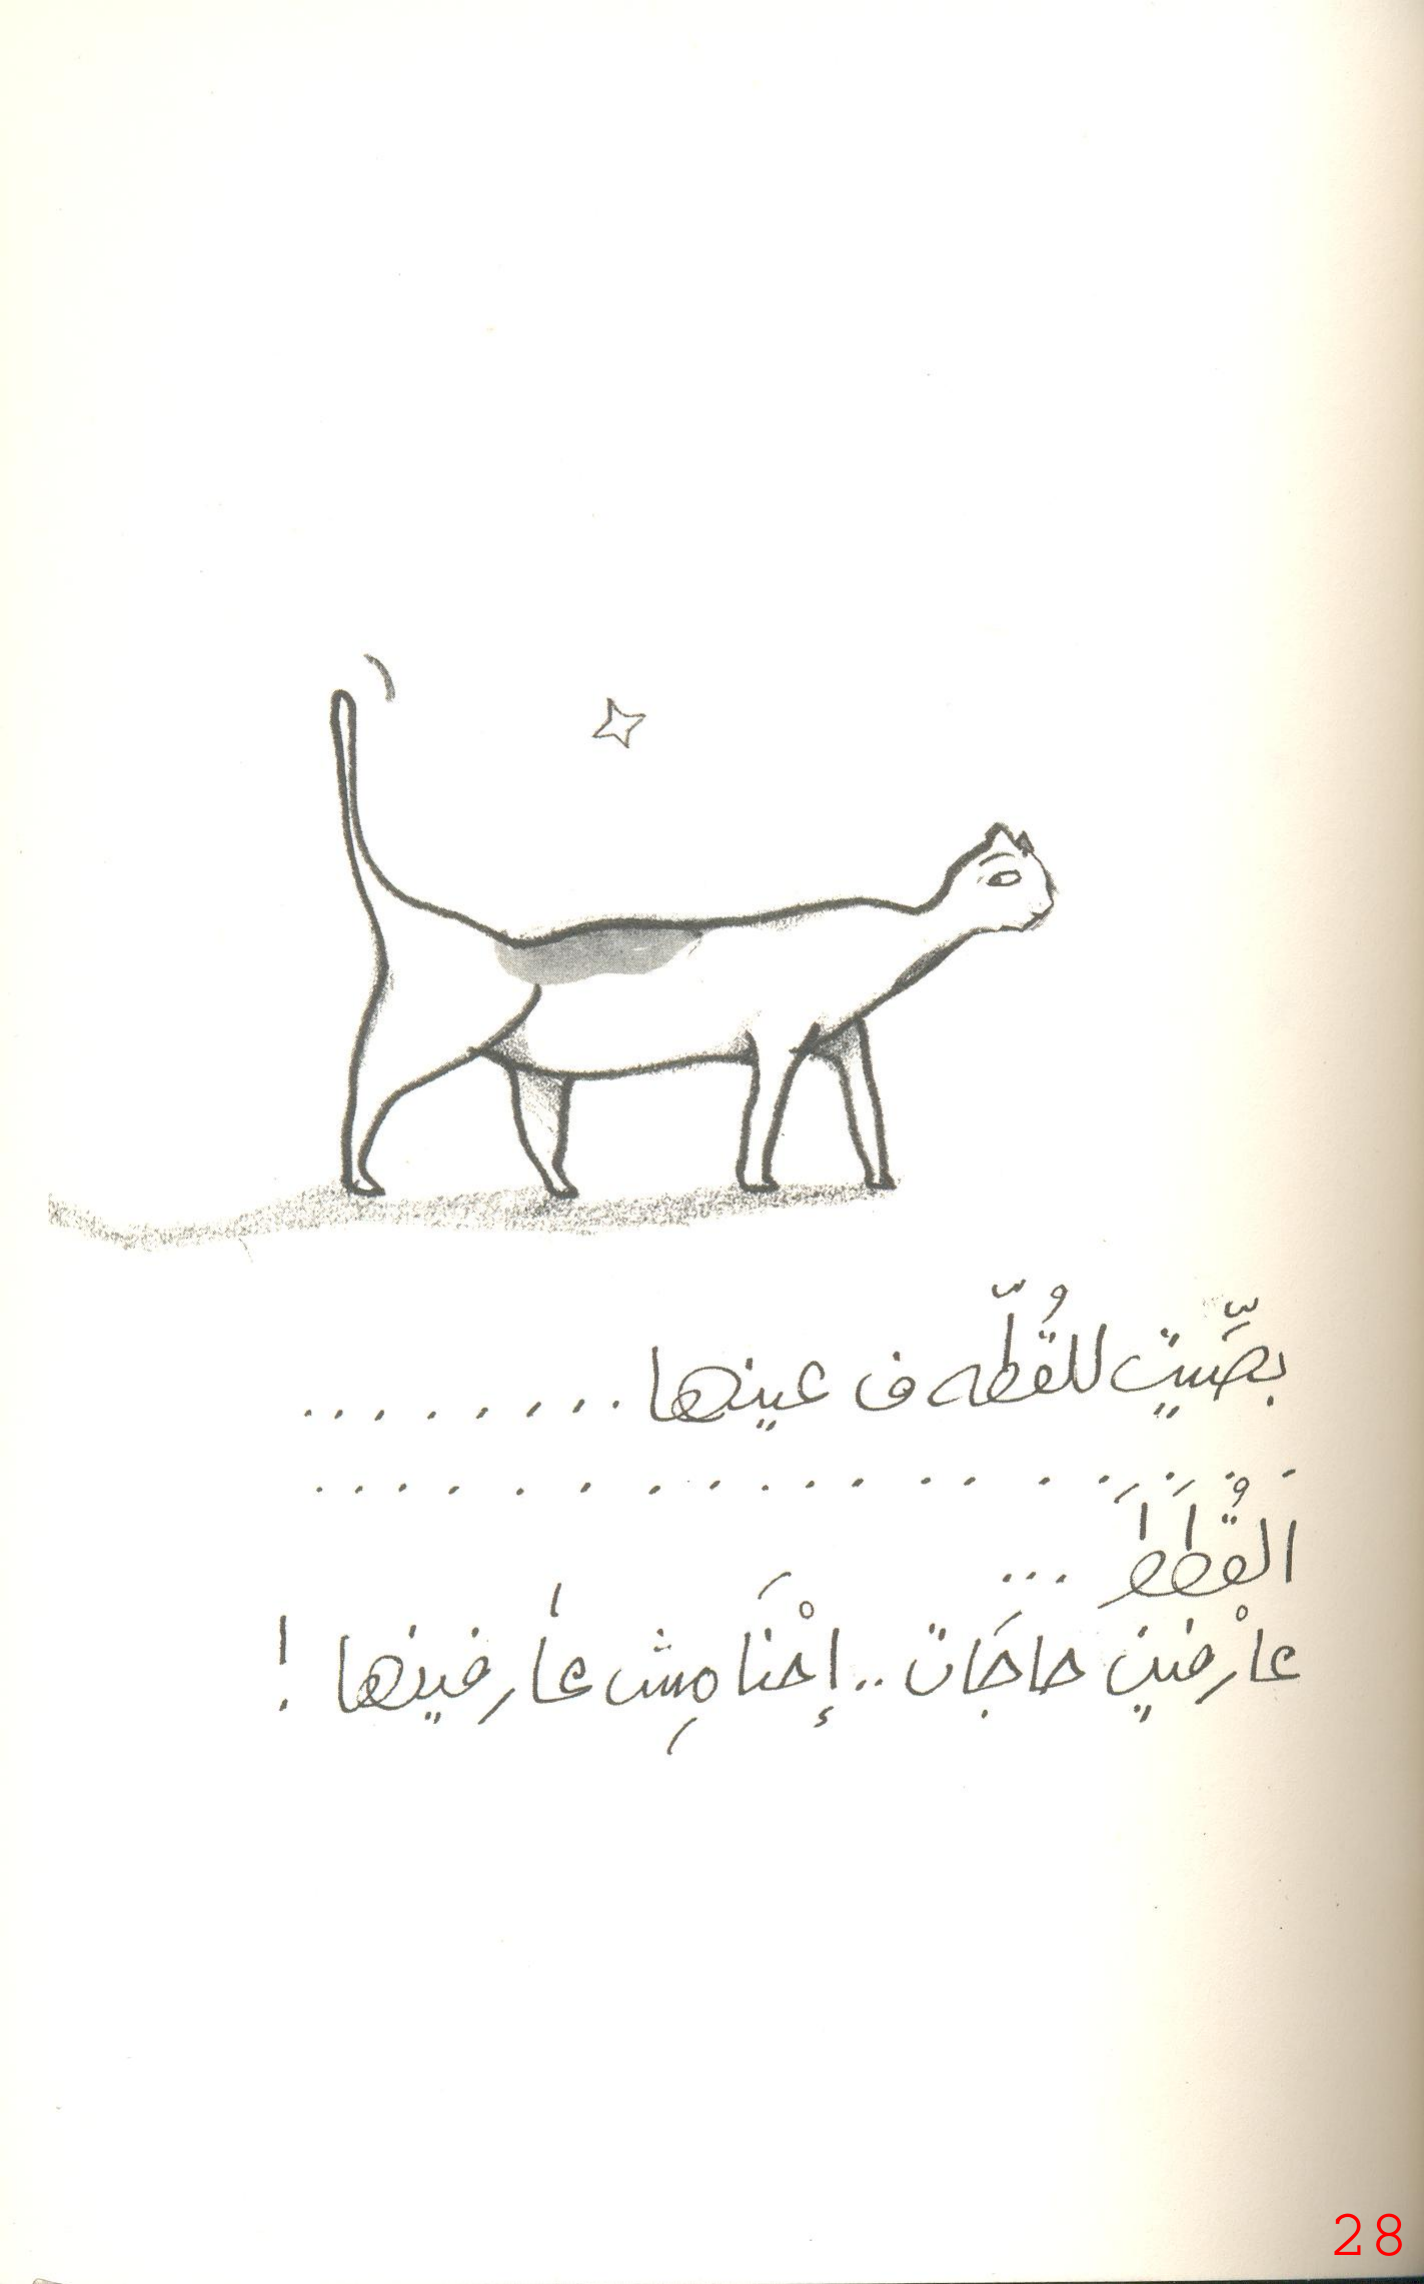 بصِّيت للقُطّه ف عينها .........
...................
القُطَطَ ...
عارْفين حاجَات .. إحْنَا مِش عارفينها !
28